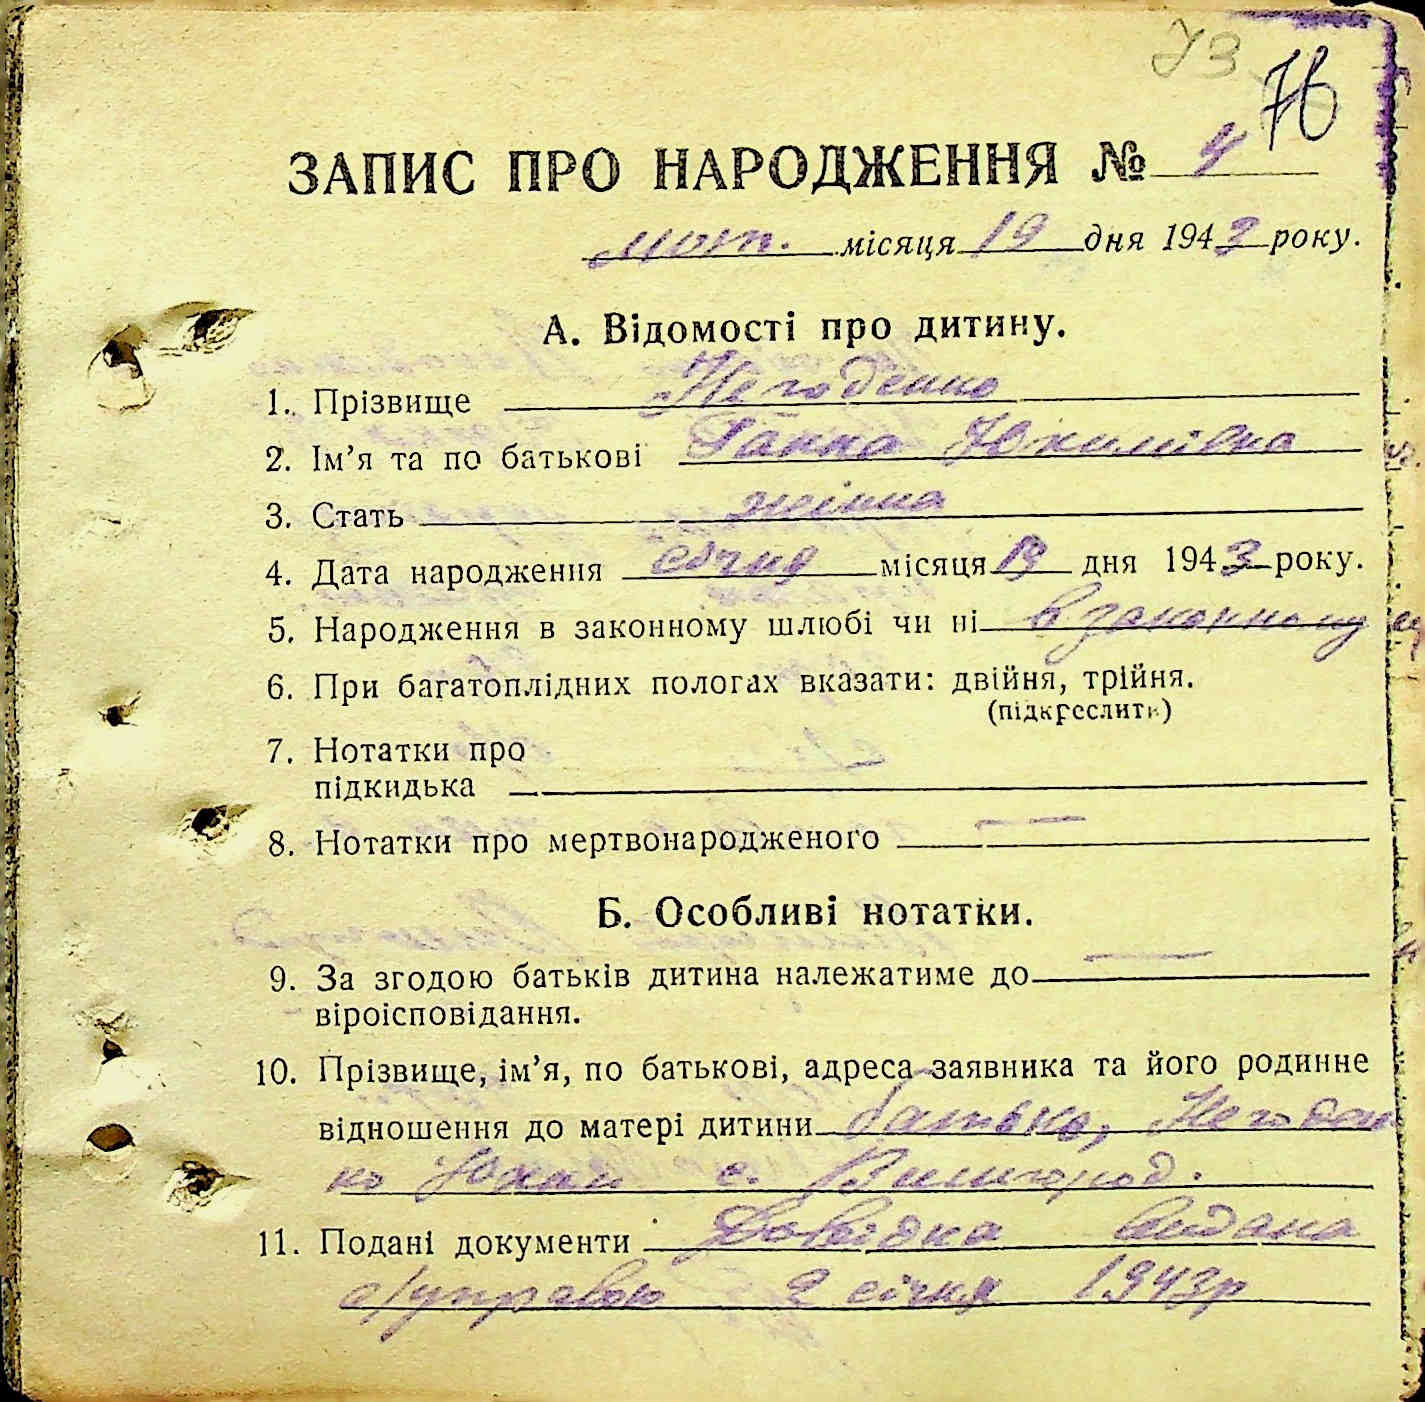 73
76
ЗАПИС ПРО НАРОДЖЕННЯ № 4
лют. місяця 19 дня 1943 року.
А. Відомості про дитину.
1. Прізвище Негоденко
2. Ім'я та по батькові Ганна Юхимівна
3. Стать жінка
4. Дата народження січня місяця 19 дня 1943 року.
5. Народження в законному шлюбі чи ні в законному
6. При багатоплідних пологах вказати: двійня, трійня.
(підкреслити)
7. Нотатки про
підкидька —
8. Нотатки про мертвонародженого —
Б. Особливі нотатки.
9. За згодою батьків дитина належатиме до —
віроісповідання.
10. Прізвище, ім'я, по батькові, адреса заявника та його родинне
відношення до матері дитини батько, Негоден
ко Юхим с. Вишгород.
11. Подані документи Довідка видана
с/управою 2 січня 1943р